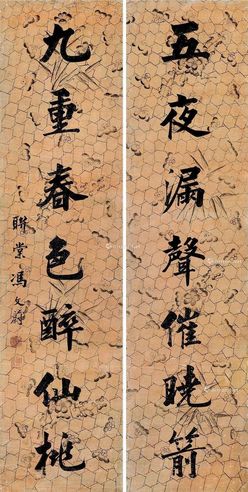 五夜漏聲催曉箭
九重春色醉仙桃
聯棠馮文蔚